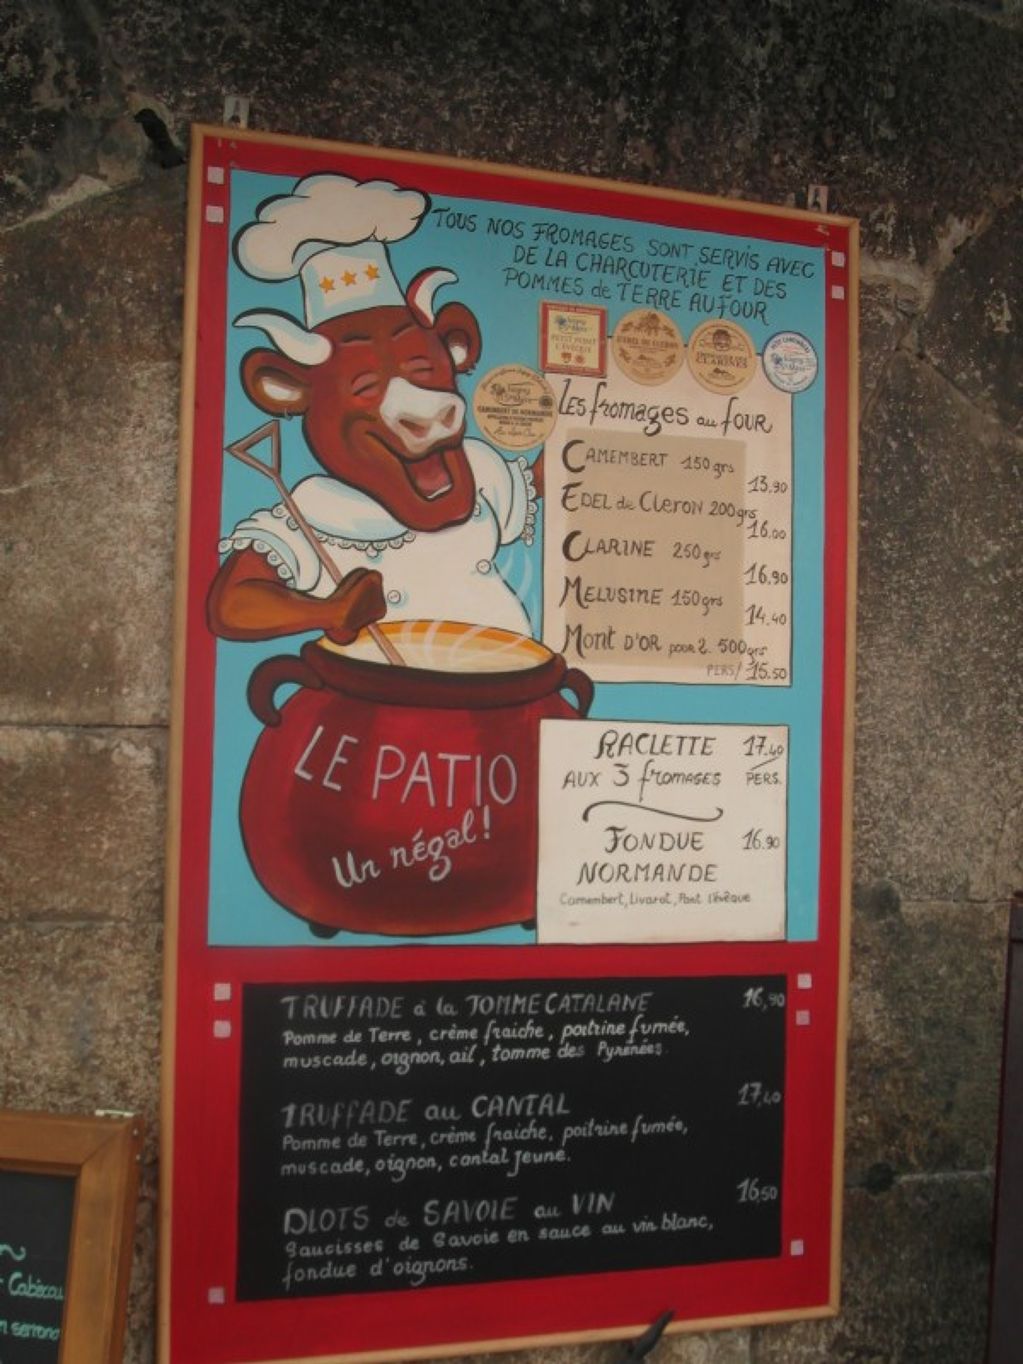 TOUS NOS FROMAGES SONT SERVIS AVEC
DE LA CHARCUTERIE ET DES
POMMES de TERRE AU FOUR
CAMEMBERT DE NORMANDIE
Les fromages au four
CAMEMBERT 150 grs 13.90
EDEL de CLERON 200grs 16.00
CLARINE 250 grs 16.90
MELUSINE 150 grs 14.40
MONT D'OR pour 2. 500grs
PERS/ 15.50
RACLETTE 17.40
AUX 3 fromages PERS.
FONDUE 16.90
NORMANDE
Camembert, Livarot, Pont l'évêque
LE PATIO
Un négal!
TRUFFADE à la TOMME CATALANE 16,90
Pomme de Terre, crème fraiche, poitrine fumée,
muscade, oignon, ail, tomme des Pyrénées
TRUFFADE au CANTAL 17,40
Pomme de Terre, crème fraiche, poitrine fumée,
muscade, oignon, cantal jeune.
DIOTS de SAVOIE au VIN 16,50
Saucisses de Savoie en sauce au vin blanc,
fondue d'oignons.
Cabécou